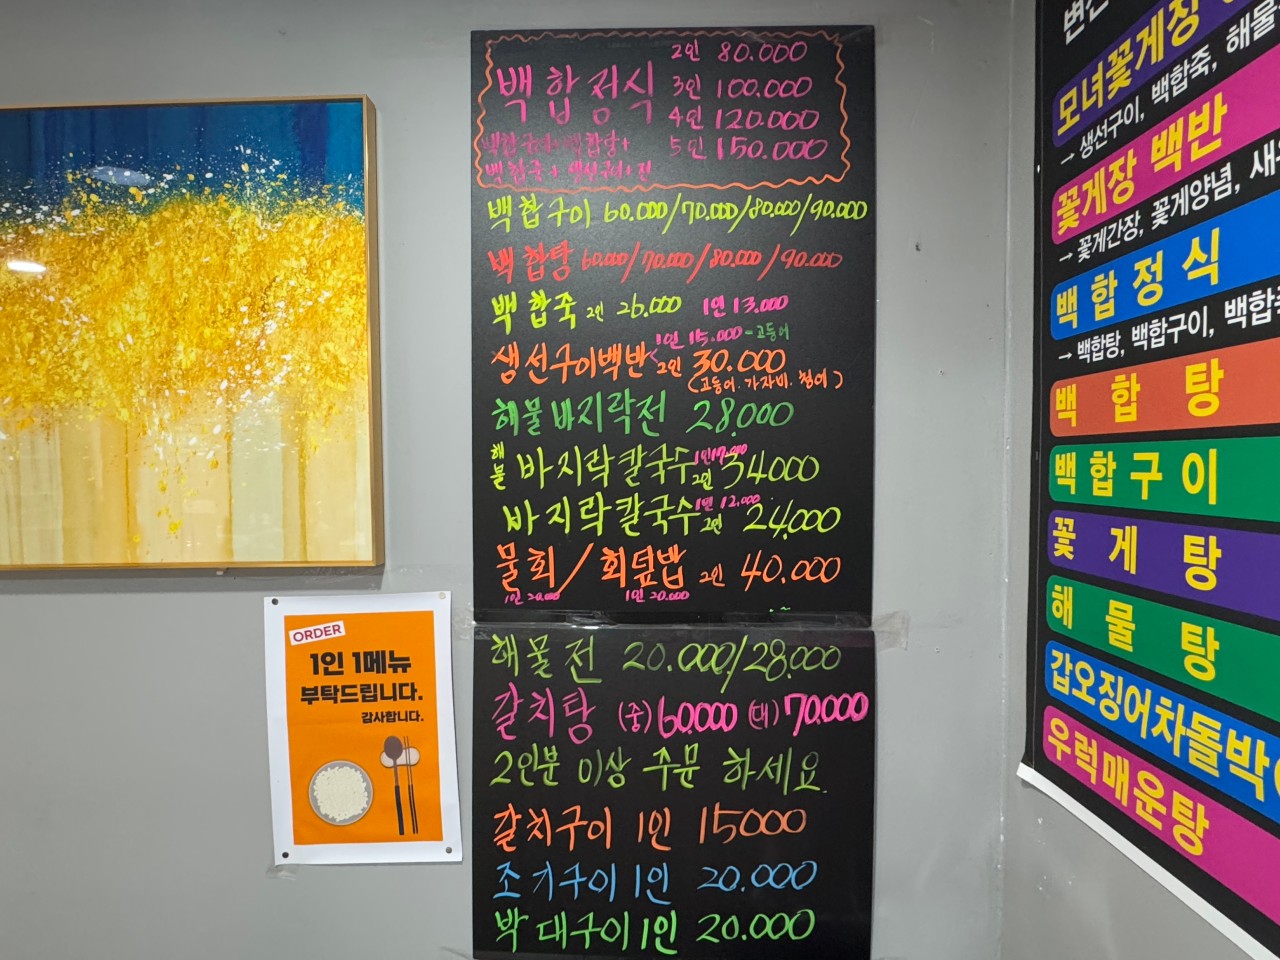 백합정식
2인 80.000
3인 100.000
4인 120.000
5인 150.000
백합구이+백합탕+
백합죽+생선구이+전
백합구이 60.000/70.000/80.000/90.000
백합탕 60.000/70.000/80.000/90.000
백합죽 2인 26.000 1인 13.000
1인 15.000-고등어
생선구이백반< 2인 30.000
(고등어. 가자미. 청어)
해물바지락전 28.000
해물 바지락칼국수 1인 17.000 2인 34000
바지락칼국수 1인 12.000 2인 24.000
물회/회덮밥 2인 40.000
1인 20.000 1인 20.000
해물전 20.000/28.000
갈치탕 (중)60.000 (대)70.000
2인분 이상 주문 하세요.
갈치구이 1인 15000
조기구이 1인 20.000
박대구이 1인 20.000
ORDER
1인 1메뉴
부탁드립니다.
감사합니다.
모녀꽃게장
→ 생선구이, 백합죽, 해물
꽃게장 백반
→ 꽃게간장, 꽃게양념,
백합정식
→ 백합탕, 백합구이,
백합탕
백합구이
꽃게탕
해물탕
갑오징어차돌박
우럭매운탕